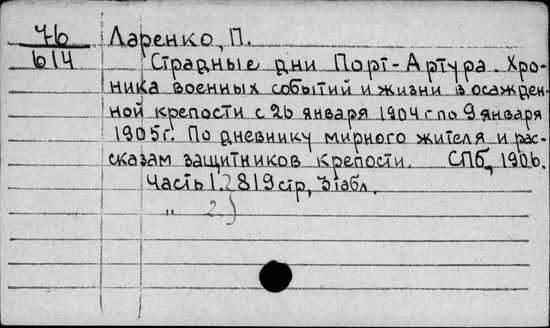 76 Ларенко, П.
614 Страдные дни Порт-Артура. Хро-
ника военных событий и жизни в осажден-
ной крепости с 26 января 1904 г по 9 января
1905 г. По дневнику мирного жителя и рас-
сказам защитников крепости. СПб, 1906.
Часть 1. 2 819 стр, 3 табл.
" 2.)